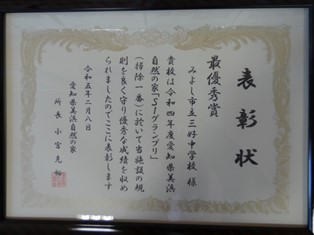 表彰状
最優秀賞
みよし市立三好中学校 様
貴校は令和四年度愛知県美浜
自然の家「S-1グランプリ」
(掃除一番)に於いて当施設の規
則を良く守り優秀な成績を収め
られましたのでここに表彰します
令和五年二月八日
愛知県美浜自然の家
所長 小宮克裕